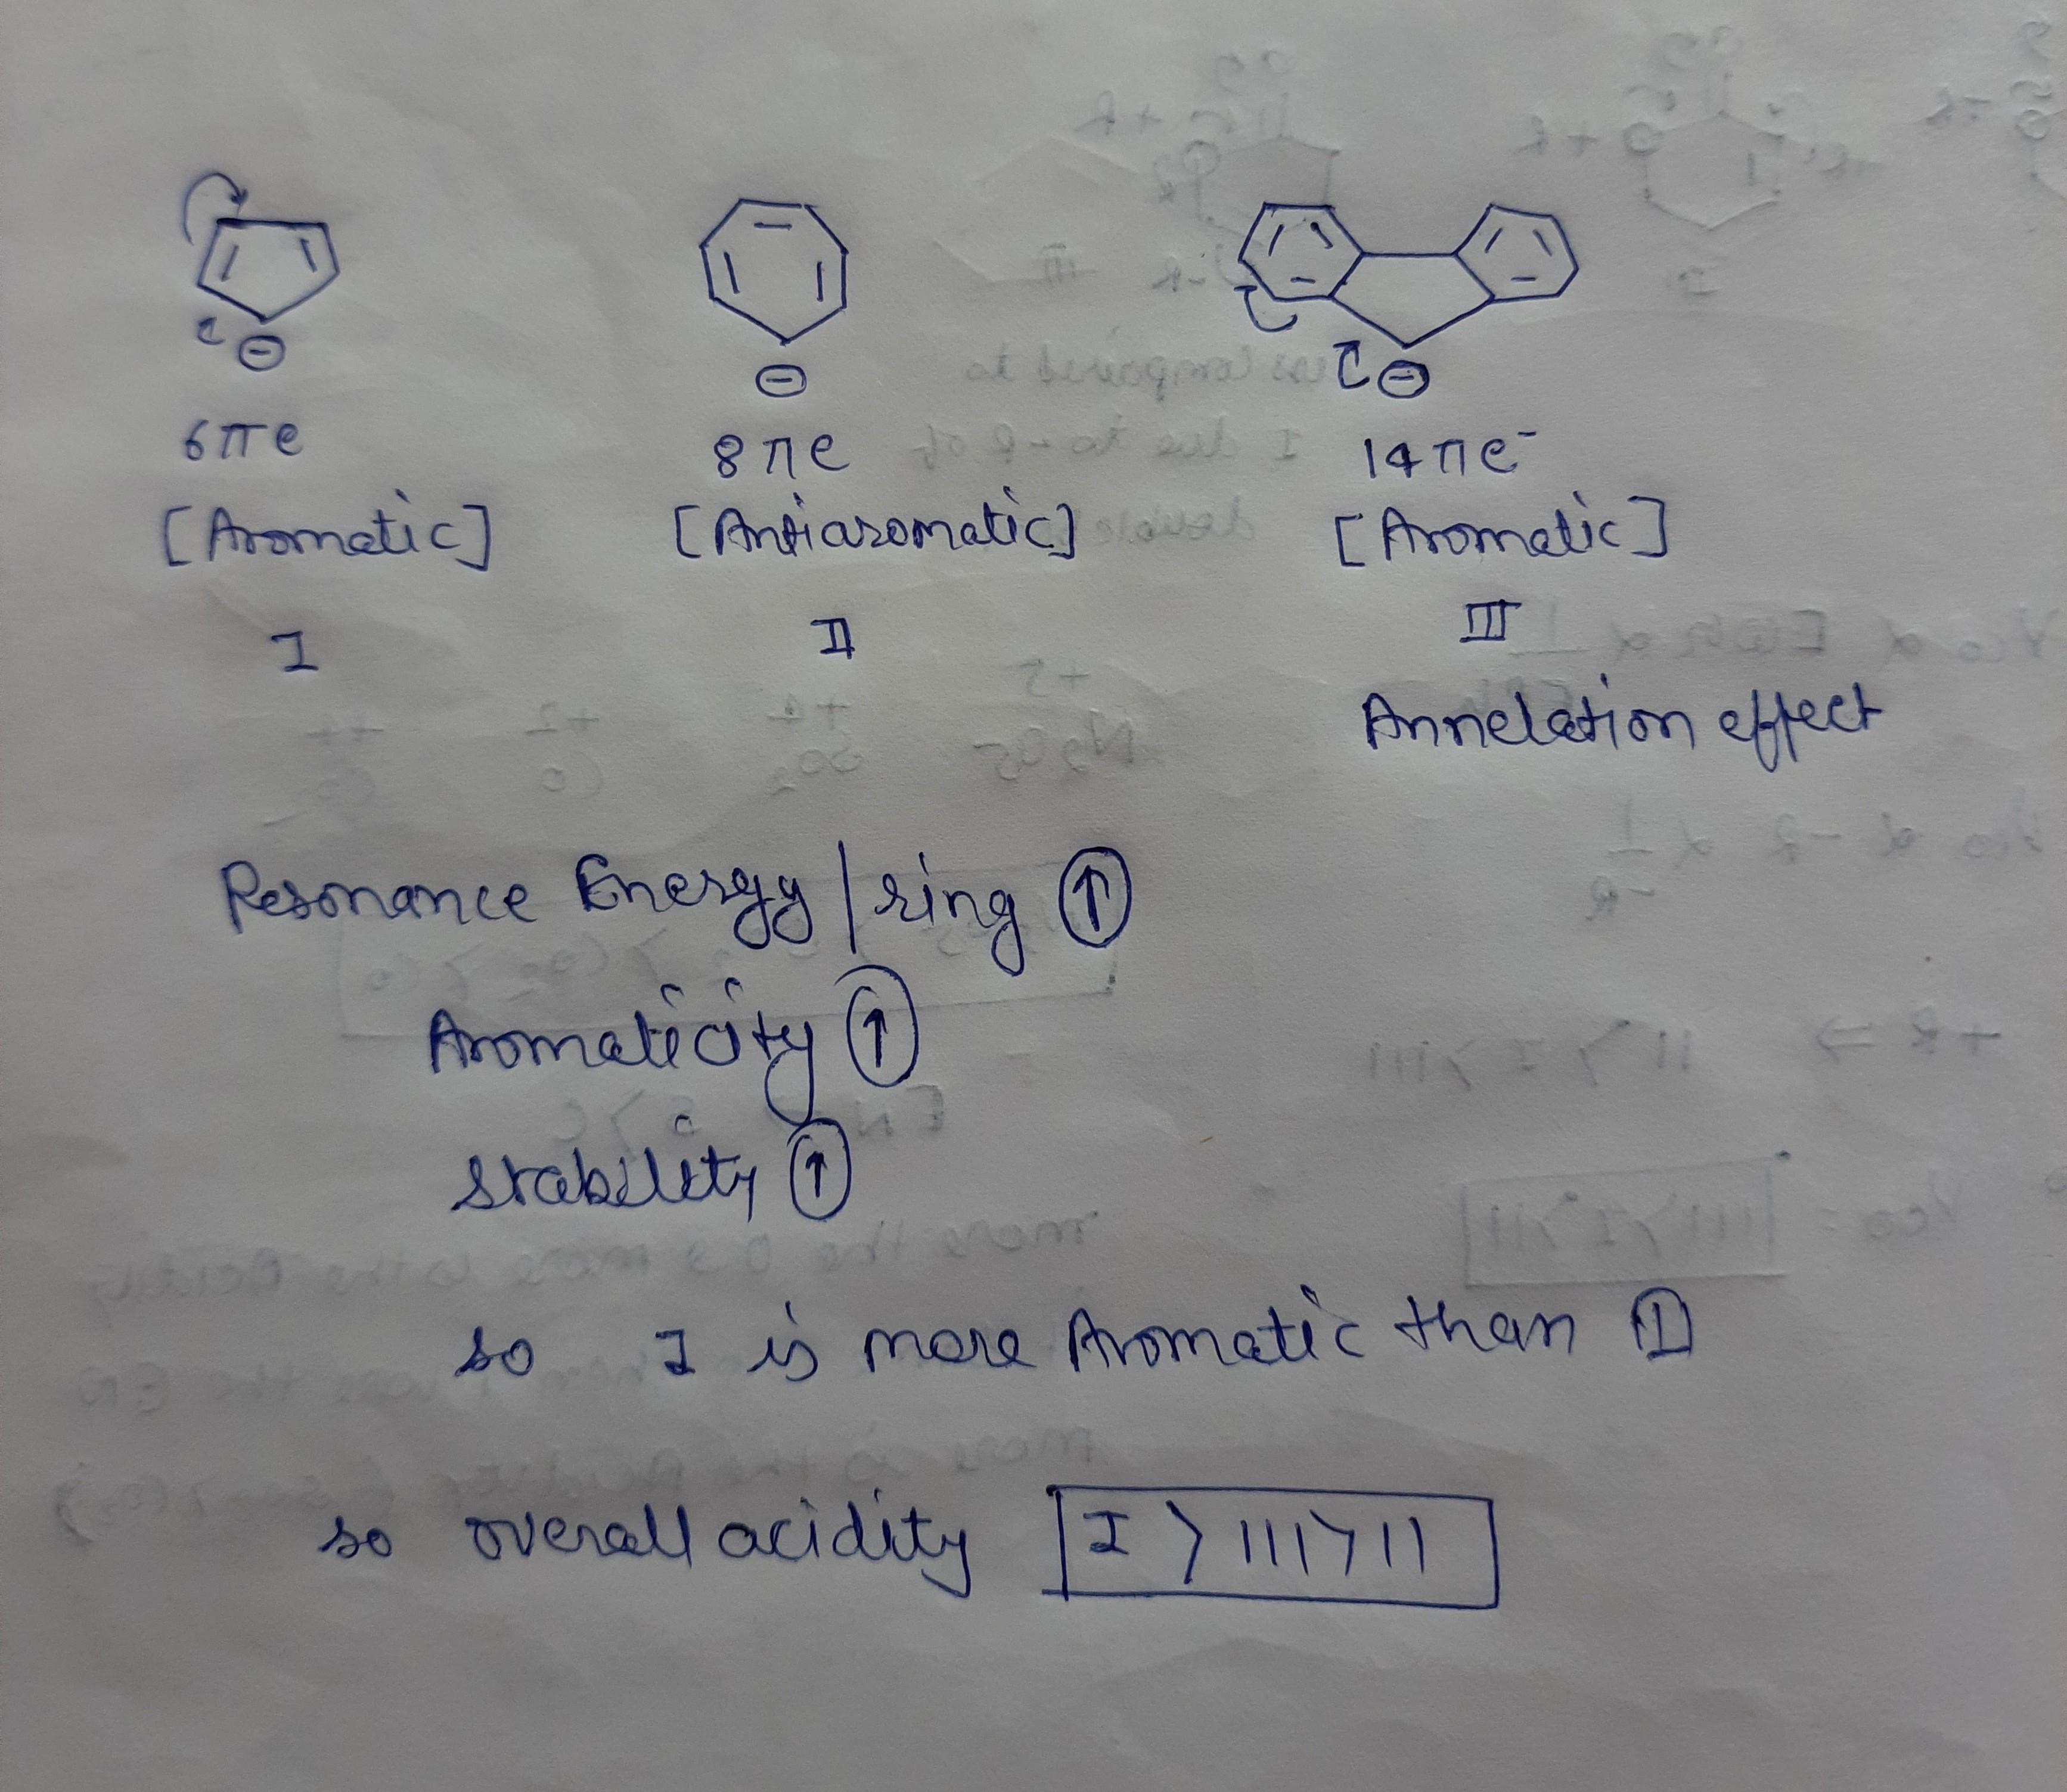 ⊖ ⊖ ⊖
6πe 8πe 14πe⁻
[Aromatic] [Antiaromatic] [Aromatic]
I II III
Annelation effect
Resonance Energy / ring ↑
Aromaticity ↑
stability ↑
so I is more Aromatic than II
so overall acidity I > III > II